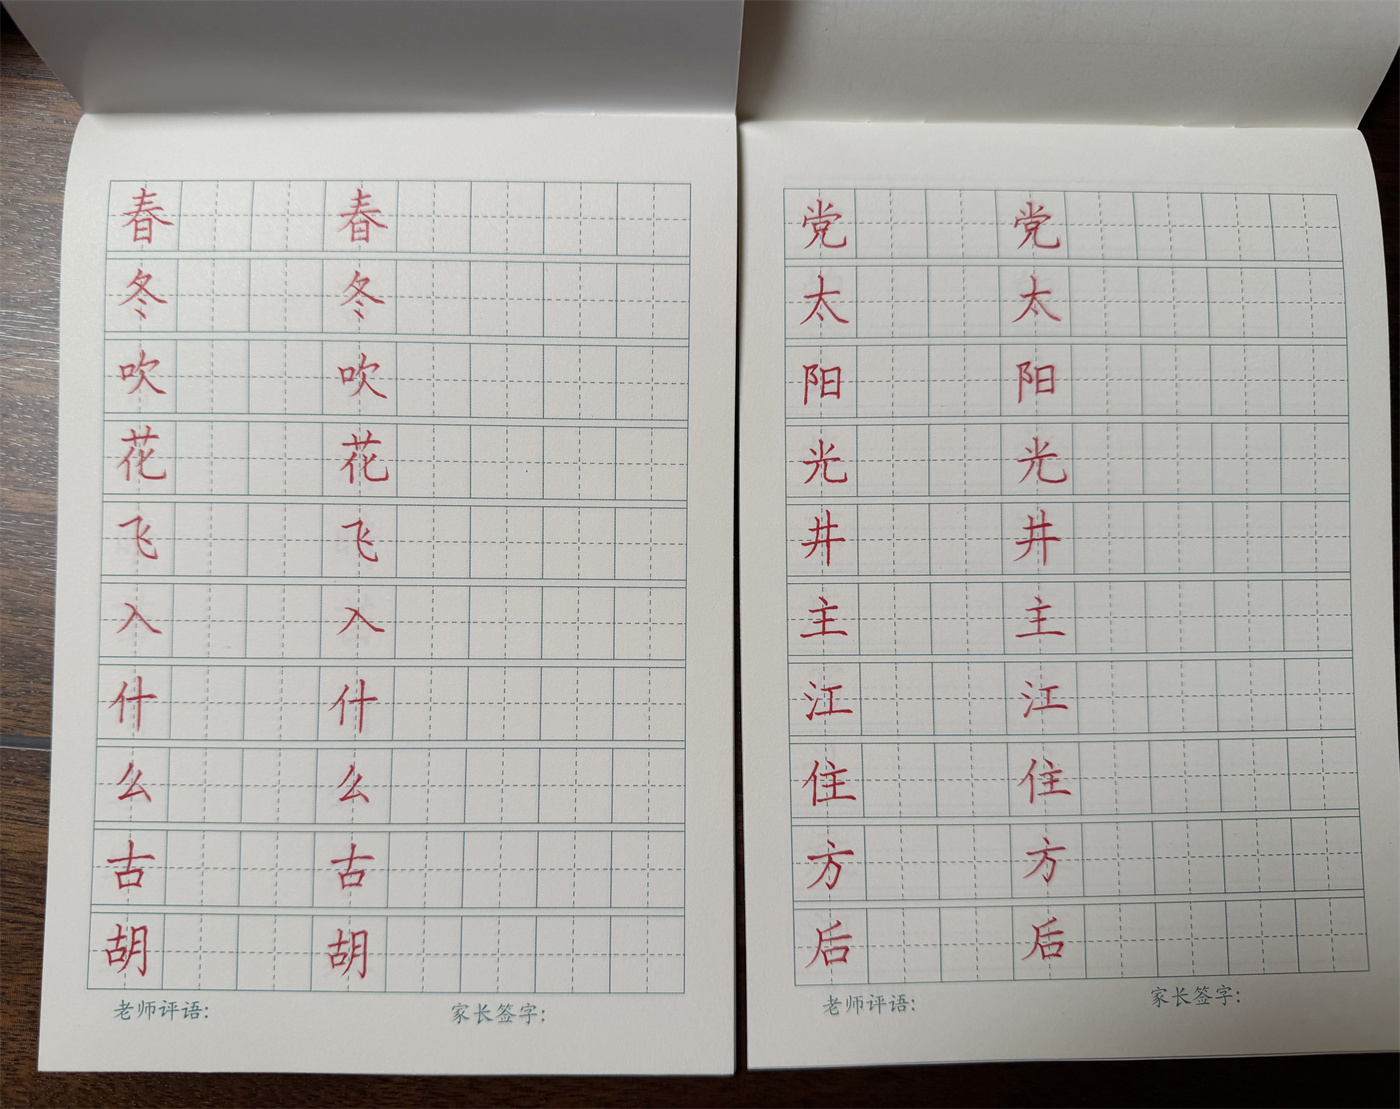 春 春
冬 冬
吹 吹
花 花
飞 飞
入 入
什 什
么 么
古 古
胡 胡
老师评语: 家长签字:
党 党
太 太
阳 阳
光 光
井 井
主 主
江 江
住 住
方 方
后 后
老师评语: 家长签字: